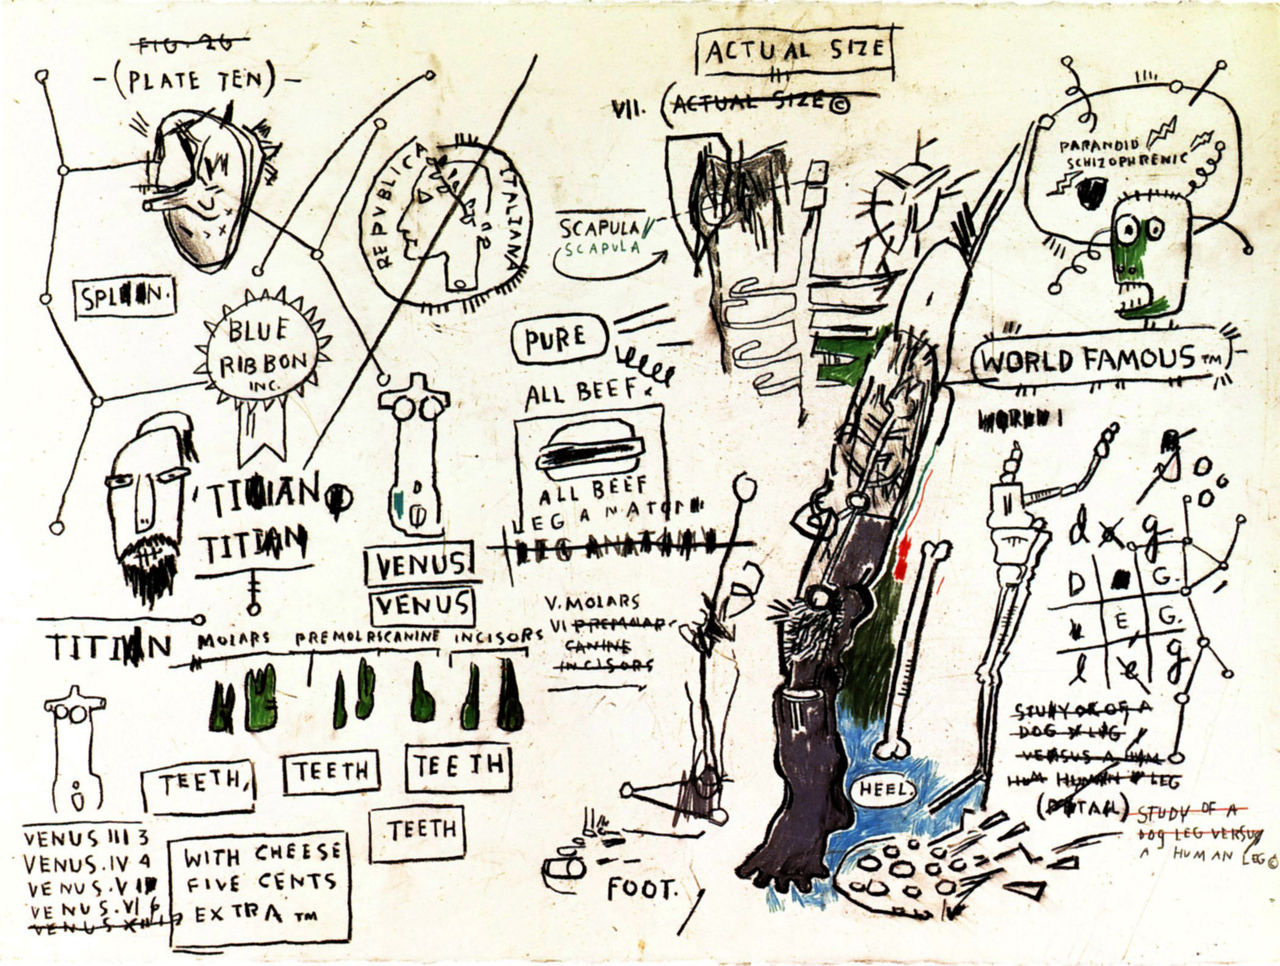 FIG. 26
(PLATE TEN)
SPLEEN.
REPVBLICA ITALIANA
BLUE
RIBBON
INC.
TITIAN
TITIAN
TITIAN
VENUS
VENUS
MOLARS PREMOLRSCANINE INCISORS
TEETH,
TEETH
TEETH
TEETH
VENUS III 3
VENUS.IV 4
VENUS.V
VENUS.VI 6
VENUS
WITH CHEESE
FIVE CENTS
EXTRA TM
ACTUAL SIZE
VII. (ACTUAL SIZE ©
SCAPULA
SCAPULA
PURE
ALL BEEF.
ALL BEEF
LEG ANATOMY
LEG ANATOMY
V. MOLARS
VI PREMOLAR
CANINE
INCISORS
FOOT.
HEEL.
PARANOID
SCHIZOPHRENIC
WORLD FAMOUS TM
d o g
D G.
E G.
l e g
STUDY OF A
DOG LEG
VERSUS A HUM
HUM HUMAN LEG
(DETAIL)
STUDY OF A
DOG LEG VERSUS
A HUMAN LEG ©